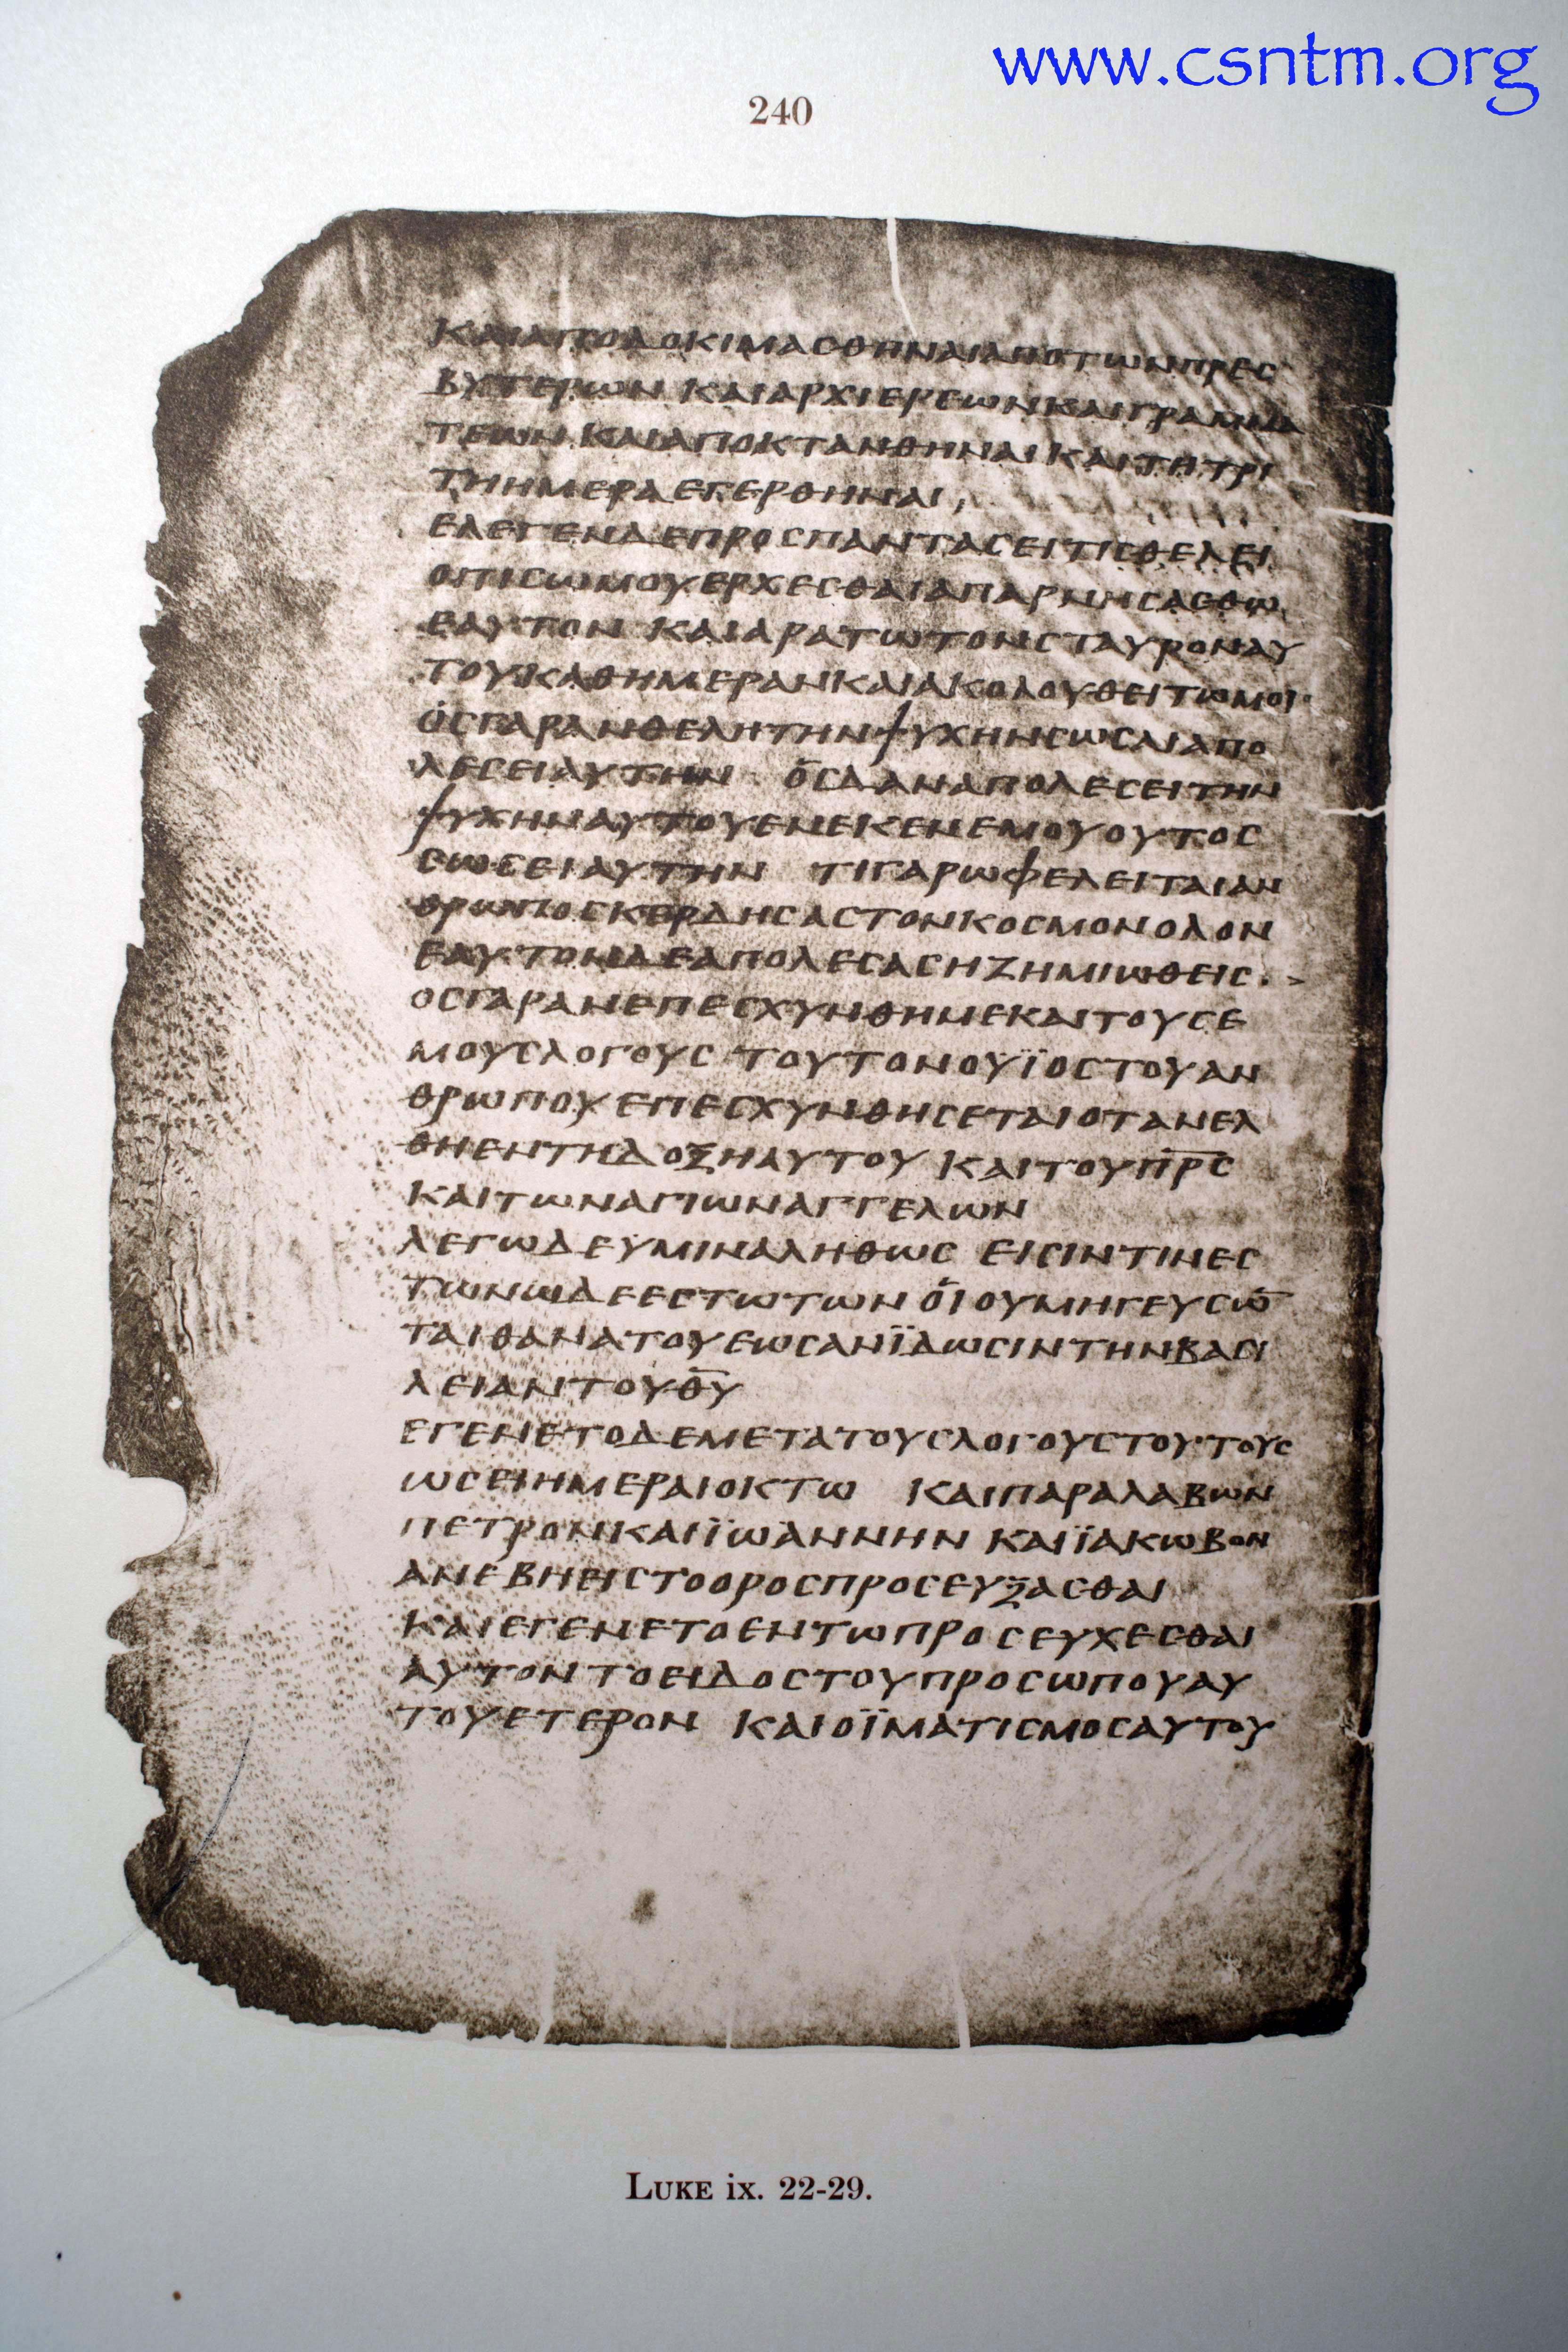 www.csntm.org
240
ΚΑΙΑΠΟΔΟΚΙΜΑСΘΗΝΑΙΑΠΟΤωΝΠΡΕС
ΒΥΤΕΡωΝ ΚΑΙΑΡΧΙΕΡΕωΝΚΑΙΓΡΑΜΜΑ
ΤΕωΝ ΚΑΙΑΠΟΚΤΑΝΘΗΝΑΙΚΑΙΤΗΤΡΙ
ΤΗΗΜΕΡΑΕΓΕΡΘΗΝΑΙ,
ΕΛΕΓΕΝΔΕΠΡΟСΠΑΝΤΑСΕΙΤΙСΘΕΛΕΙ
ΟΠΙСωΜΟΥΕΡΧΕСΘΑΙΑΠΑΡΝΗСΑСΘω
ΕΑΥΤΟΝ ΚΑΙΑΡΑΤωΤΟΝСΤΑΥΡΟΝΑΥ
ΤΟΥΚΑΘΗΜΕΡΑΝΚΑΙΑΚΟΛΟΥΘΕΙΤωΜΟΙ·
ΟСΓΑΡΑΝΘΕΛΗΤΗΝΨΥΧΗΝСωСΑΙΑΠΟ
ΛΕСΕΙΑΥΤΗΝ ΟСΔΑΝΑΠΟΛΕСΕΙΤΗΝ
ΨΥΧΗΝΑΥΤΟΥΕΝΕΚΕΝΕΜΟΥΟΥΤΟС
СωСΕΙΑΥΤΗΝ ΤΙΓΑΡωΦΕΛΕΙΤΑΙΑΝ
ΘΡωΠΟСΚΕΡΔΗСΑСΤΟΝΚΟСΜΟΝΟΛΟΝ
ΕΑΥΤΟΝΔΕΑΠΟΛΕСΑСΗΖΗΜΙωΘΕΙС·
ΟСΓΑΡΑΝΕΠΕСΧΥΝΘΗΜΕΚΑΙΤΟΥСΕ
ΜΟΥСΛΟΓΟΥС ΤΟΥΤΟΝΟΥΪΟСΤΟΥΑΝ
ΘΡωΠΟΥΕΠΕСΧΥΝΘΗСΕΤΑΙΟΤΑΝΕΛ
ΘΗΕΝΤΗΔΟΞΗΑΥΤΟΥ ΚΑΙΤΟΥΠ̅Ρ̅С̅
ΚΑΙΤωΝΑΓΙωΝΑΓΓΕΛωΝ
ΛΕΓωΔΕΥΜΙΝΑΛΗΘωС ΕΙСΙΝΤΙΝΕС
ΤωΝωΔΕΕСΤωΤωΝΟΙΟΥΜΗΓΕΥСω̅
ΤΑΙΘΑΝΑΤΟΥΕωСΑΝΪΔωСΙΝΤΗΝΒΑСΙ
ΛΕΙΑΝΤΟΥΘ̅Υ̅
ΕΓΕΝΕΤΟΔΕΜΕΤΑΤΟΥСΛΟΓΟΥСΤΟΥΤΟΥС
ωСΕΙΗΜΕΡΑΙΟΚΤω ΚΑΙΠΑΡΑΛΑΒωΝ
ΠΕΤΡΟΝΚΑΙΪωΑΝΝΗΝ ΚΑΙΪΑΚωΒΟΝ
ΑΝΕΒΗΕΙСΤΟΟΡΟСΠΡΟСΕΥΞΑСΘΑΙ
ΚΑΙΕΓΕΝΕΤΟΕΝΤωΠΡΟСΕΥΧΕСΘΑΙ
ΑΥΤΟΝΤΟΕΙΔΟСΤΟΥΠΡΟСωΠΟΥΑΥ
ΤΟΥΕΤΕΡΟΝ ΚΑΙΟΪΜΑΤΙСΜΟСΑΥΤΟΥ
LUKE ix. 22-29.